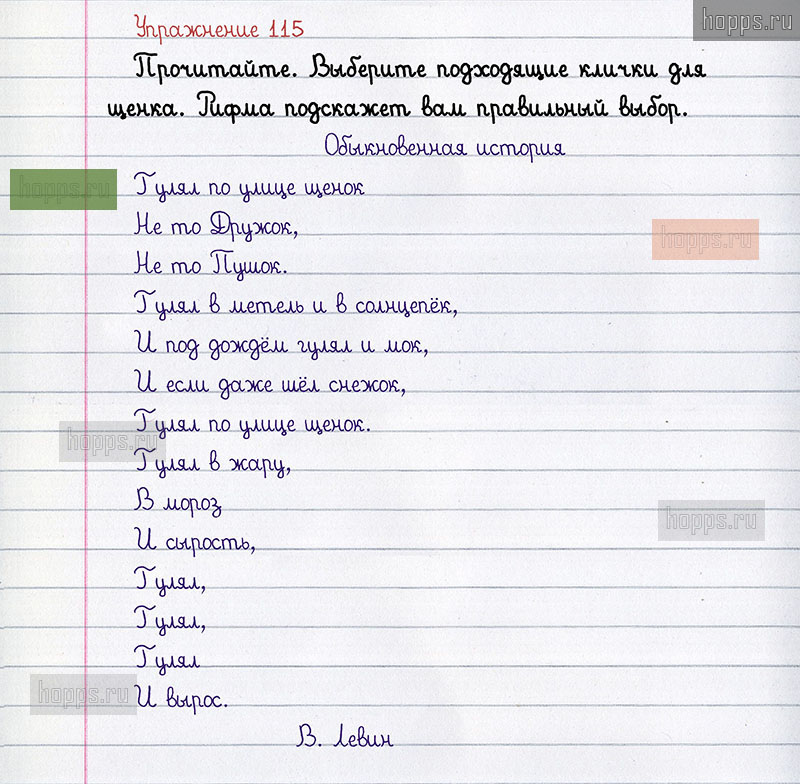 hopps.ru
Упражнение 115
Прочитайте. Выберите подходящие клички для
щенка. Рифма подскажет вам правильный выбор.
Обыкновенная история
hopps.ru
Гулял по улице щенок
Не то Дружок,
hopps.ru
Не то Пушок.
Гулял в метель и в солнцепёк,
И под дождём гулял и мок,
И если даже шёл снежок,
Гулял по улице щенок.
hopps.ru
Гулял в жару,
В мороз
hopps.ru
И сырость,
Гулял,
Гулял,
Гулял
hopps.ru
И вырос.
В. Левин